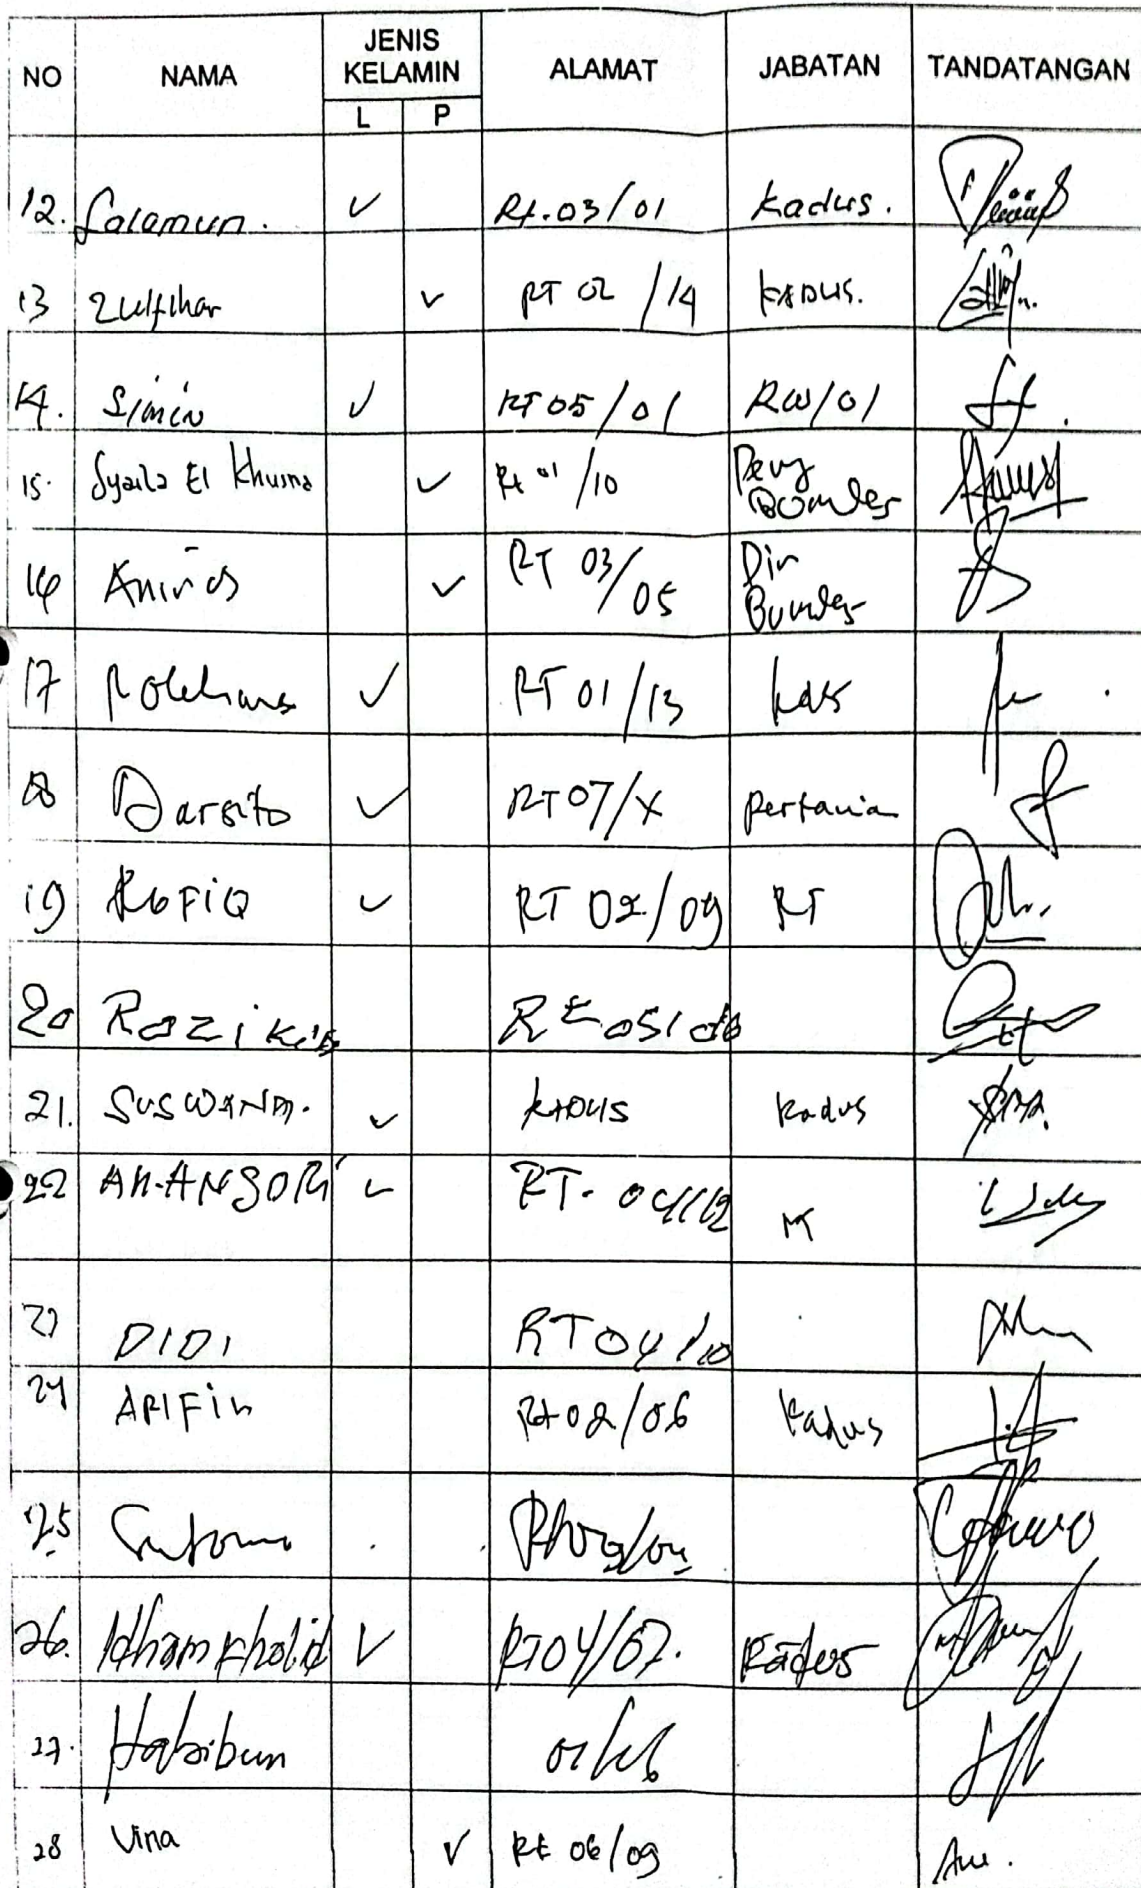 NO NAMA JENIS KELAMIN ALAMAT JABATAN TANDATANGAN
L P
12. Salamun. ✓ Rt.03/01 Kadus.
13 Zulfihar ✓ RT 02 /14 KADUS.
14. Simin ✓ RT 05/01 RW/01
15. Syaila El Khusna ✓ Rt 01/10
16 ✓ RT 03/05 Dir
17 ✓ RT 01/13
18 Darsito ✓ RT 07/X Pertania
19 RoFiQ ✓ RT 02/09 RT
20 Rozikin Rt 05/06
21. SUSWANDI. ✓ KADUS Kadus
22 AH.ANSORI ✓ RT. 04/12 RT
23 DIDI RT 04/10
24 ARIFin Rt 02/06 Kadus
25
26. Idham Kholid ✓ RT 04/07. Kadus
27. Habibun
28 Vina ✓ Rt 06/09